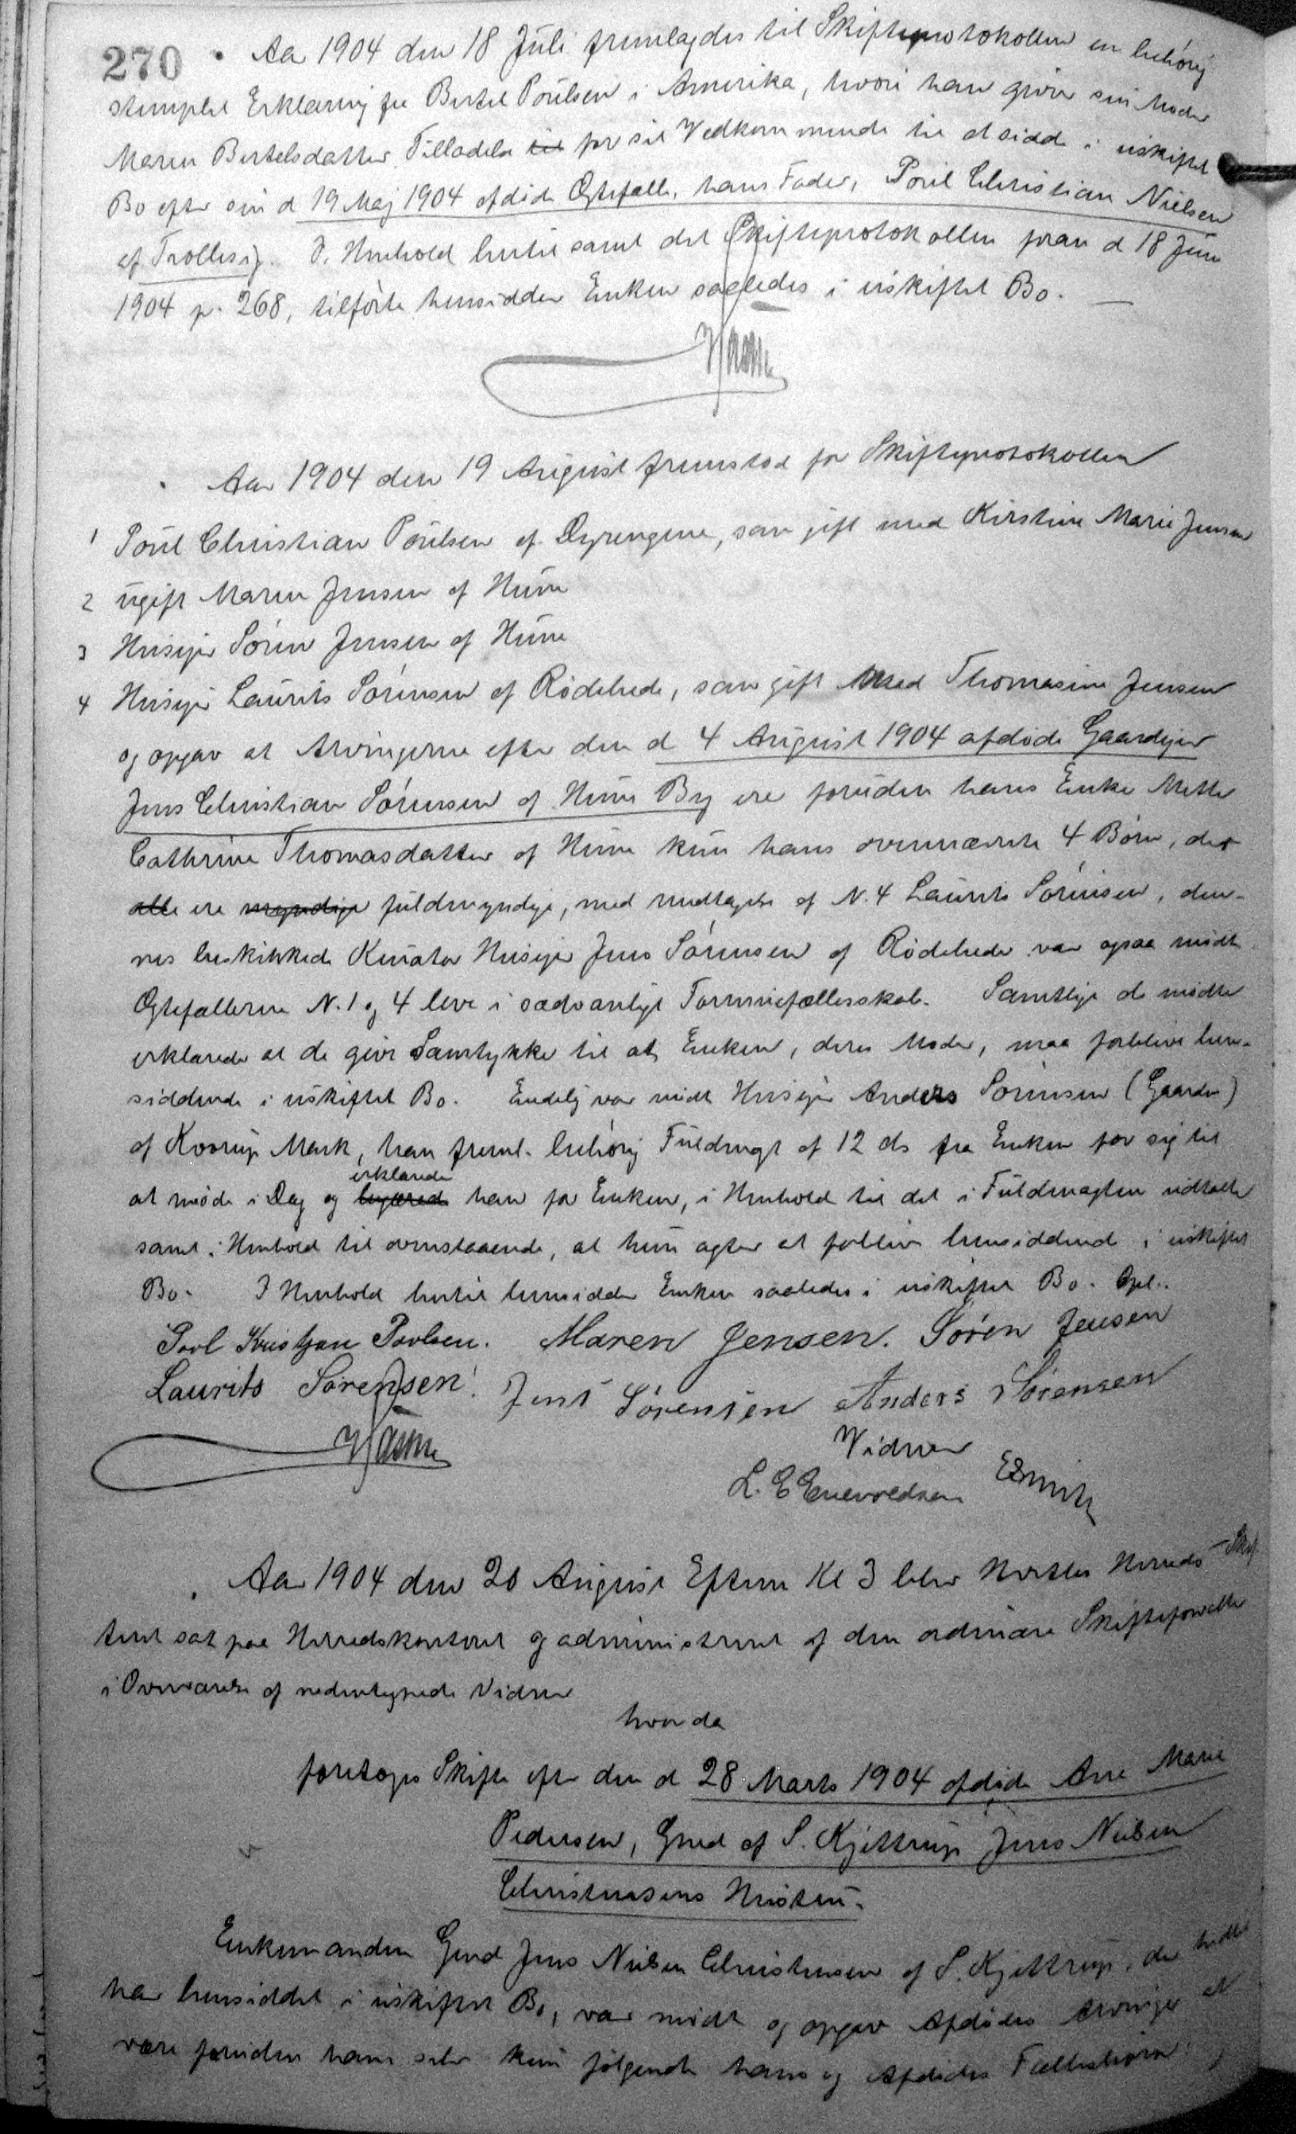 270 . Aar 1904 den 18 Juli fremlagdes til Skifteprotokollen en behörig
stemplet Erklæring fra Bertel Poulsen i Amerika, hvori han giver sin Moder
Maren Bertelsdatter Tilladelse til for sit Vedkommende til at sidde i uskiftet
Bo efter sin d 19 Maj 1904 afdøde Ægtefælle, hans Fader, Poul Christian Nielsen
af Trollesig. I Henhold hertil samt det Skifteprotokollen for d 18 Juni
1904 p. 268, tilførte hensidder Enken saaledes i uskiftet Bo. —
. Aar 1904 den 19 August fremstod for Skifteprotokollen
1 Poul Christian Poulsen af Dyrengene, som gift med Kirstine Marie Jensen
2 ugift Maren Jensen af Hune
3 Husejer Sören Jensen af Hune
4 Husejer Laurits Sörensen af Rödehede, som gift med Thomasine Jensen
og opgav at Arvingerne efter den d 4 August 1904 afdøde Gaardejer
Jens Christian Sörensen af Hune By ere foruden hans Enke Mette
Cathrine Thomasdatter af Hune kun hans ovennævnte 4 Börn, der
alle ere myndige fuldmyndige, med Undtagelse af N. 4 Laurits Sörensen, den-
nes beskikkede Kurator Husejer Jens Sörensen af Rödehede var ogsaa mödt.
Ægtefællerne N. 1 og 4 leve i sædvanligt Formuefællesskab. Samtlige de mödte
erklærede at de give Samtykke til at Enken, deres Moder, maa forblive hen-
siddende i uskiftet Bo. Endelig var mödt Husejer Anders Sörensen (Gaarden)
af Kvorup Mark, han freml. behörig Fuldmagt af 12 ds fra Enken for sig til
at möde i Dag og begærede erklærede han for Enken, i Henhold til det i Fuldmagten udtalte
samt i Henhold til ovenstaaende, at hun agter at forblive hensiddende i uskiftet
Bo. I Henhold hertil hensidder Enken saaledes i uskiftet Bo. Opl.
Povl Kristjan Povlsen. Maren Jensen. Søren Jensen
Laurits Sørensen. Jens Sørensen Anders Sørensen
Vidner
L. C Enevoldsen
. Aar 1904 den 20 August Efterm Kl 3 blev Hvetbo Herreds Skif-
teret sat paa Herredskontoret og administreret af den ordinære Skifteforvalter
i Overværelse af undertegnede Vidner
hvor da
foretoges Skifte efter den d 28 Marts 1904 afdøde Ane Marie
Pedersen, Gmd af S. Kjettrup Jens Nielsen
Christensens Hustru.
Enkemanden Gmd Jens Nielsen Christensen af S. Kjettrup, der hidtil
har hensiddet i uskiftet Bo, var mödt og opgav Afdødes Arvinger at
være foruden ham selv kun følgende hans og Afdødes Fællesbörn